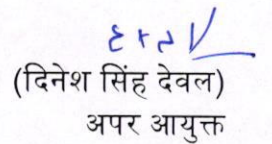 (दिनेश सिंह देवल)
अपर आयुक्त